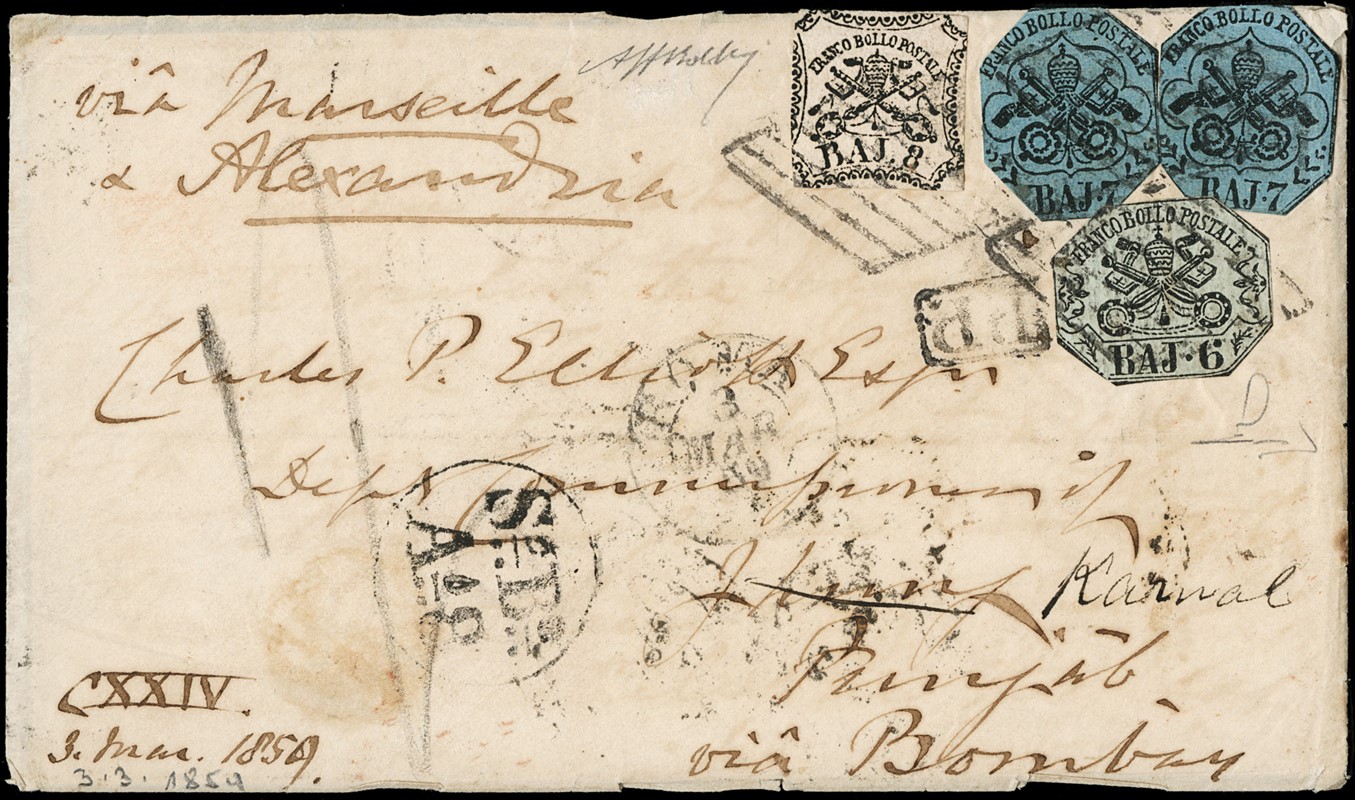 viâ Marseille
& Alexandria
FRANCO BOLLO POSTALE
BAJ. 8
FRANCO BOLLO POSTALE
BAJ. 7
FRANCO BOLLO POSTALE
BAJ. 7
FRANCO BOLLO POSTALE
BAJ. 6
P.P.
D
Charles P. Elliott Esqr
3
MAR
59
Depy Commissioner of
Jhung Karnal
Punjâb
viâ Bombay
CXXIV.
3. Mar. 1859.
3.3.1859